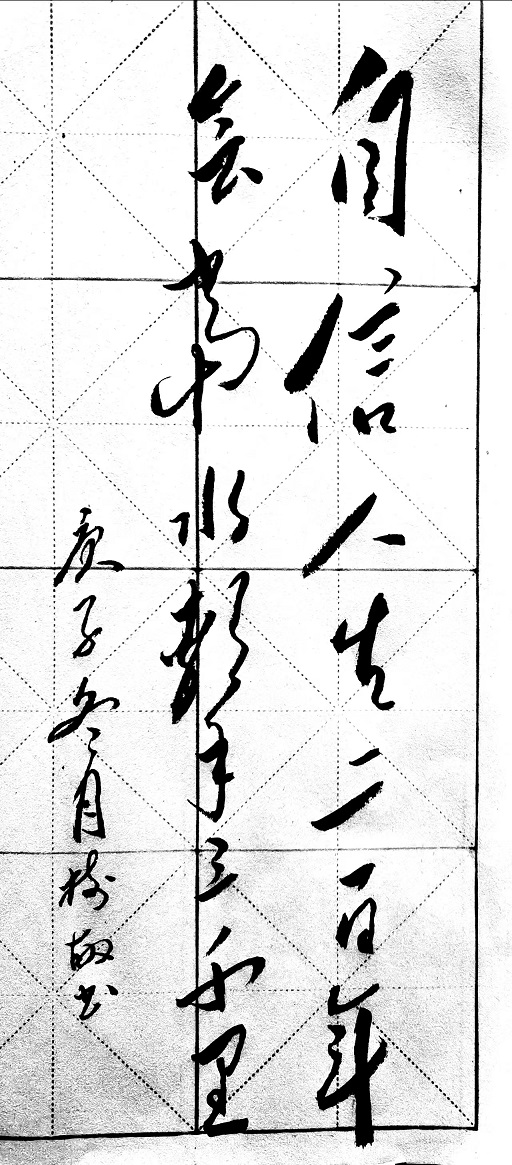 自信人生二百年
会当水击三千里
庚子冬月树敏书